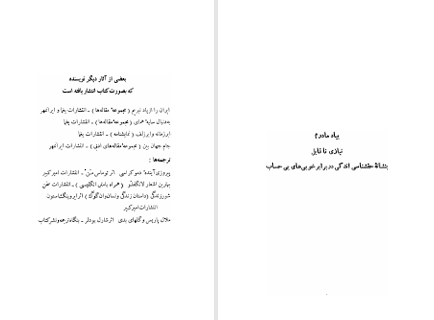 بیاد مادرم
نیازی ناقابل
بنشانهٔ حقشناسی اندکی در برابر خوبی‌های بی حساب
بعضی از آثار دیگر نویسنده
که بصورت کتاب انتشار یافته است
ایران را از یاد نبریم (مجموعهٔ مقاله‌ها) ـ انتشارات یغما و ایرانمهر
به‌دنبال سایهٔ همای (مجموعهٔ مقاله‌ها) ـ انتشارات یغما
ابر زمانه و ابر زلف (نمایشنامه) ـ انتشارات یغما
جام جهان بین (مجموعه مقاله‌های ادبی) ـ انتشارات ایرانمهر
ترجمه‌ها :
پیروزی آیندهٔ دموکراسی اثر توماس من ـ انتشارات امیرکبیر
بهترین اشعار لانگفلو (همراه با متن انگلیسی) ـ انتشارات سخن
شور زندگی (داستان زندگی ونسان وان گوگ) اثر ایروینگ استون
انتشارات امیرکبیر
ملال پاریس و گلهای بدی اثر شارل بودلر ـ بنگاه ترجمه و نشر کتاب